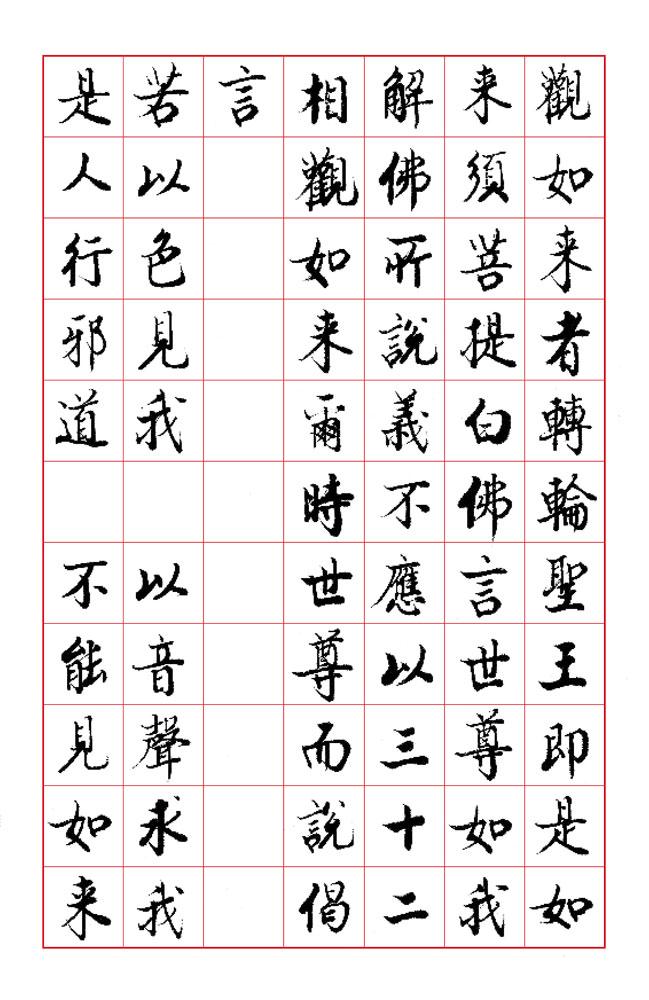 觀如来者轉輪聖王即是如
来須菩提白佛言世尊如我
解佛所說義不應以三十二
相觀如来爾時世尊而說偈
言
若以色見我 以音聲求我
是人行邪道 不能見如来